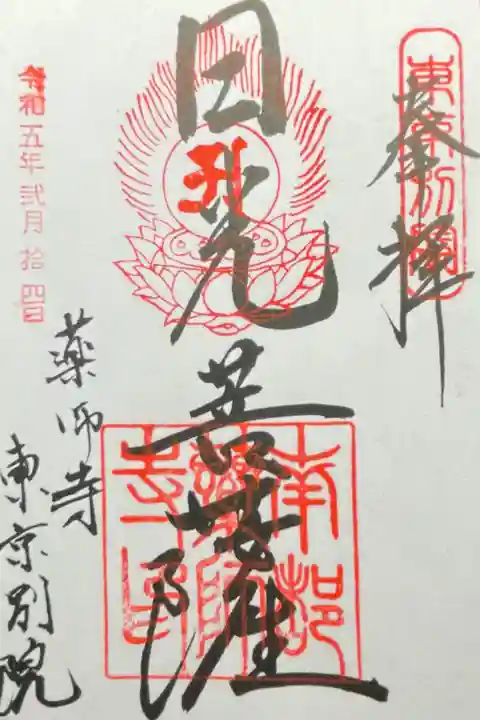 奉拝
東京別院
日光菩薩
南都薬師寺印
令和五年弐月拾四日
薬師寺
東京別院